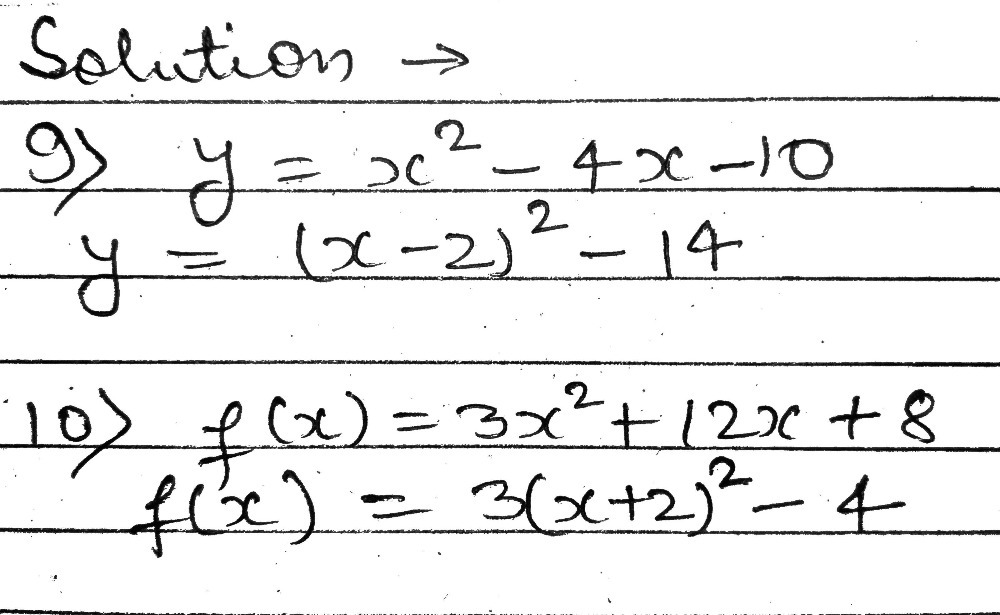 Solution →
9> y = x² - 4x - 10
y = (x - 2)² - 14
10> f(x) = 3x² + 12x + 8
f(x) = 3(x+2)² - 4